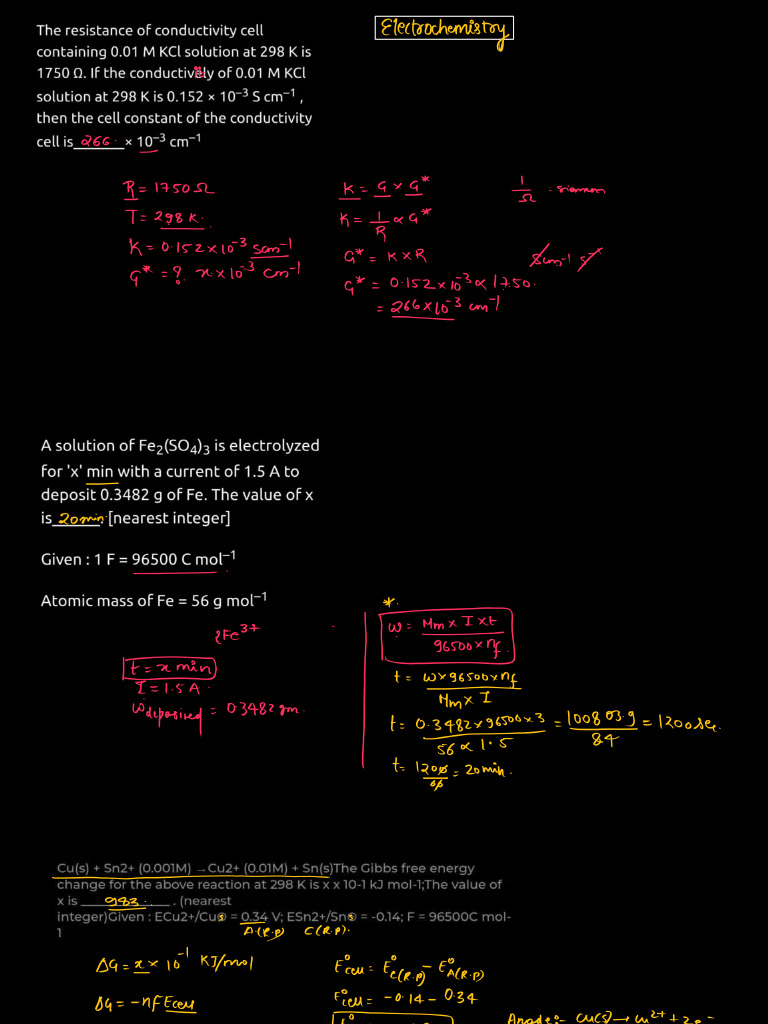 Electrochemistry
The resistance of conductivity cell
containing 0.01 M KCl solution at 298 K is
1750 Ω. If the conductively of 0.01 M KCl
solution at 298 K is 0.152 × 10⁻³ S cm⁻¹ ,
then the cell constant of the conductivity
cell is 266 × 10⁻³ cm⁻¹
R = 1750 Ω
T = 298 K.
K = 0.152 × 10⁻³ Scm⁻¹
G* = ? x × 10⁻³ cm⁻¹
K = G × G*
K = 1/R × G*
G* = K × R
G* = 0.152 × 10⁻³ × 1750.
= 266 × 10⁻³ cm⁻¹
1/Ω : siemen
Scm⁻¹ S⁻¹
A solution of Fe₂(SO₄)₃ is electrolyzed
for 'x' min with a current of 1.5 A to
deposit 0.3482 g of Fe. The value of x
is 20min. [nearest integer]
Given : 1 F = 96500 C mol⁻¹
Atomic mass of Fe = 56 g mol⁻¹
2Fe³⁺
t = x min
I = 1.5 A
Wdeposited = 0.3482 gm.
*.
W = Mm × I × t / 96500 × nf
t = W × 96500 × nf / Mm × I
t = 0.3482 × 96500 × 3 / 56 × 1.5 = 100803.9 / 84 = 1200 sec.
t = 1200 / 60 = 20 min.
Cu(s) + Sn2+ (0.001M) →Cu2+ (0.01M) + Sn(s)The Gibbs free energy
change for the above reaction at 298 K is x x 10-1 kJ mol-1;The value of
x is 983 . (nearest
integer)Given : ECu2+/Cu⊖ = 0.34 V; ESn2+/Sn⊖ = -0.14; F = 96500C mol-
1
A(R.P) C(R.P).
ΔG = x × 10⁻¹ KJ/mol
ΔG = -nFEcell
E°cell = E°C(R.P) - E°A(R.P)
E°cell = -0.14 - 0.34
Anode:- Cu(s) → Cu²⁺ + 2e⁻